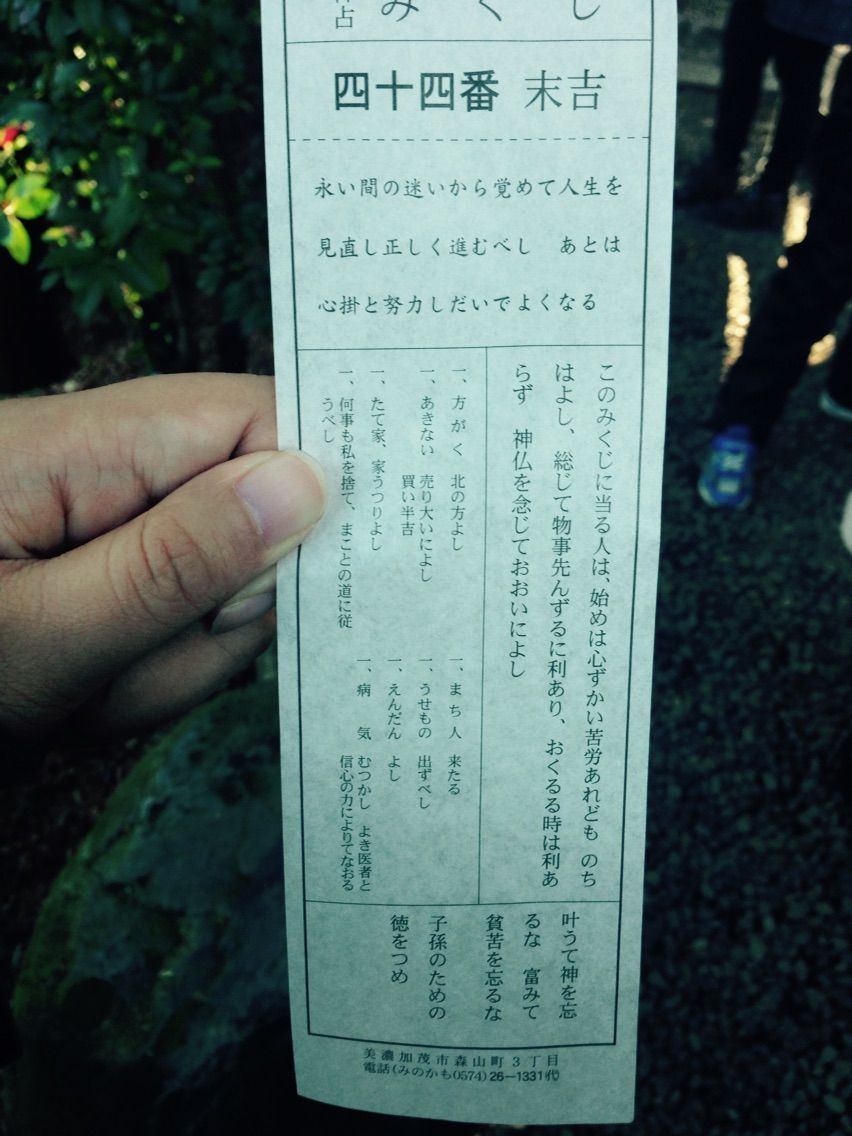 占 みくじ
四十四番 末吉
永い間の迷いから覚めて人生を
見直し正しく進むべし　あとは
心掛と努力しだいでよくなる
このみくじに当る人は、始めは心ずかい苦労あれども のち
はよし、総じて物事先んずるに利あり、おくるる時は利あ
らず　神仏を念じておおいによし
一、方がく　北の方よし
一、あきない　売り大いによし
買い半吉
一、たて家、家うつりよし
一、何事も私を捨て、まことの道に従
うべし
一、まち人　来たる
一、うせもの　出ずべし
一、えんだん　よし
一、病気　むつかし　よき医者と
信心の力によりてなおる
叶うて神を忘
るな　富みて
貧苦を忘るな
子孫のための
徳をつめ
美濃加茂市森山町3丁目
電話(みのかも0574)26-1331代